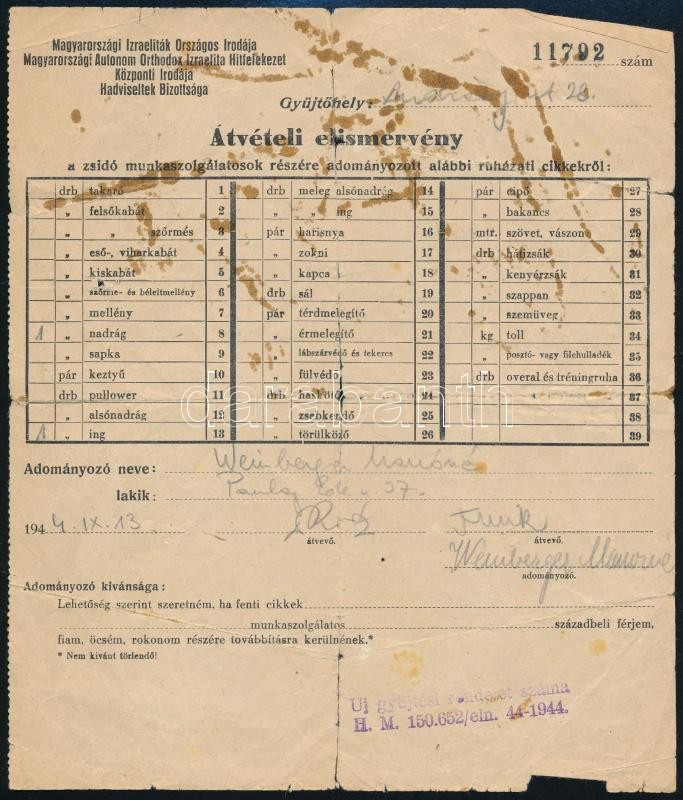 Magyarországi Izraeliták Országos Irodája
Magyarországi Autonom Orthodox Izraelita Hitfelekezet
Központi Irodája
Hadviseltek Bizottsága
11792 szám
Gyüjtőhely: 26.
Átvételi elismervény
a zsidó munkaszolgálatosok részére adományozott alábbi ruházati cikkekről:
drb takaró 1 drb meleg alsónadrág 14 pár cipő 27
„ felsőkabát 2 „ „ ing 15 „ bakancs 28
„ „ szőrmés 3 pár harisnya 16 mtr. szövet, vászon 29
„ eső-, viharkabát 4 „ zokni 17 drb hátizsák 30
„ kiskabát 5 „ kapca 18 „ kenyérzsák 31
„ szőrme- és béleltmellény 6 drb sál 19 „ szappan 32
„ mellény 7 pár térdmelegítő 20 „ szemüveg 33
1 „ nadrág 8 „ érmelegítő 21 kg toll 34
„ sapka 9 „ lábszárvédő és tekercs 22 „ posztó- vagy filchulladék 35
pár keztyű 10 „ fülvédő 23 drb overal és tréningruha 36
drb pullower 11 drb haskötő 24 37
„ alsónadrág 12 „ zsebkendő 25 38
1 „ ing 13 „ törülköző 26 39
darabanth
Adományozó neve: Weinberger Manóné
lakik: Pauley Ede u 37.
1944. IX. 13.
átvevő. átvevő.
Weinberger Manóné
adományozó.
Adományozó kivánsága:
Lehetőség szerint szeretném, ha fenti cikkek
munkaszolgálatos századbeli férjem,
fiam, öcsém, rokonom részére továbbításra kerülnének.*
* Nem kívánt törlendő!
Uj gyüjtési rendelet száma
H. M. 150.652/eln. 44-1944.